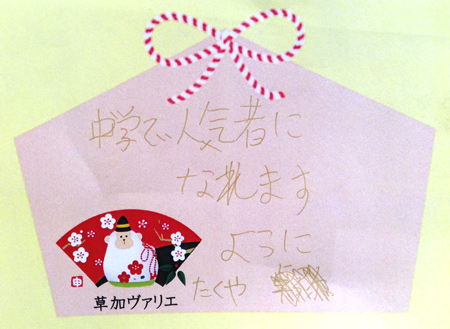 中学で人気者に
なれます
ように
たくや
申
草加ヴァリエ